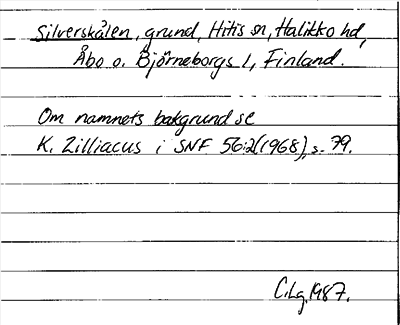 Silverskålen, grund, Hitis sn, Halikko hd,
Åbo o. Björneborgs l, Finland.
Om namnets bakgrund se
K. Zilliacus i SNF 56:2(1968), s. 79.
C.Lg. 1987.